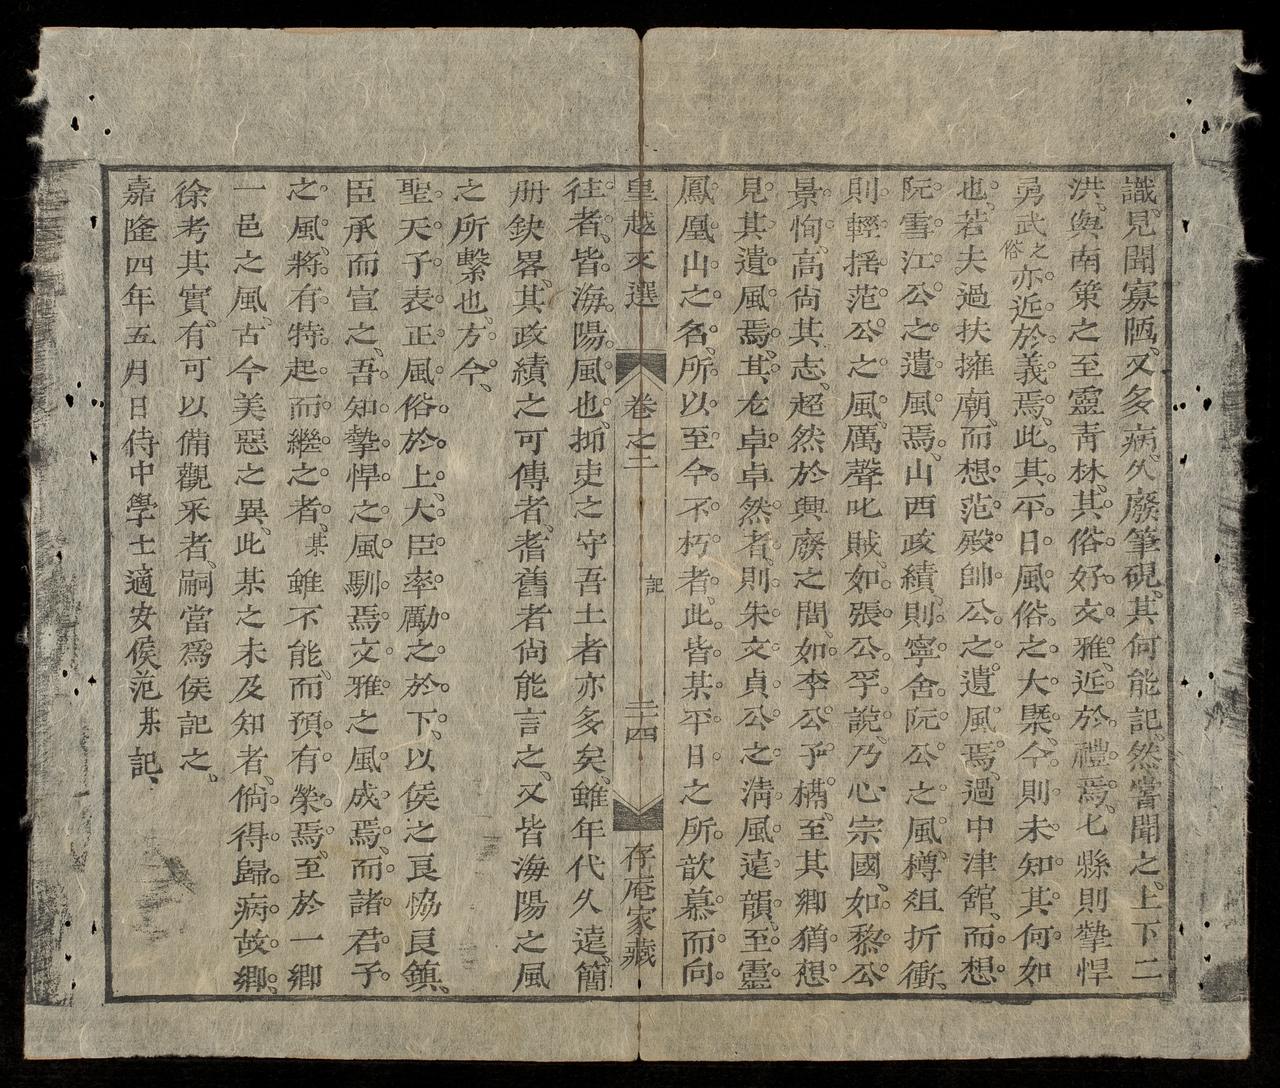 識見聞寡陋、又多病、久廢筆硯、其何能記、然嘗聞之、上下二
洪、與南策之至靈青林、其俗好文雅、近於禮焉、七縣則摯悍
勇武之俗亦近於義焉、此其平日風俗之大槩、今則未知其何如
也、若夫過扶擁廟、而想范殿帥公之遺風焉、過中津舘、而想
阮雪江公之遺風焉、山西政績、則寧舍阮公之風、樽俎折衝、
則輕搖范公之風、厲聲叱賊、如張公孚說、乃心宗國、如黎公
景恂、高尙其志、超然於興廢之間、如李公子構、至其鄉猶想
見其遺風焉、其尤卓卓然者、則朱文貞公之淸風遠韻、至靈
鳳凰山之名、所以至今不朽者、此皆某平日之所歆慕而向
皇越文選 卷之二 記 二十四 存庵家藏
往者、皆海陽風也、抑吏之守吾土者亦多矣、雖年代久遠、簡
册鈌畧、其政績之可傳者、耆舊者尙能言之、又皆海陽之風
之所繫也、方今、
聖天子表正風俗於上、大臣率勵之於下、以侯之良恊良鎮、
臣承而宣之、吾知摯悍之風馴焉、文雅之風成焉、而諸君子
之風、將有特起而繼之者、某雖不能、而預有榮焉、至於一鄉
一邑之風、古今美惡之異、此某之未及知者、倘得歸病故鄉、
徐考其實、有可以備觀采者、嗣當爲侯記之、
嘉隆四年五月日侍中學士適安侯范某記、